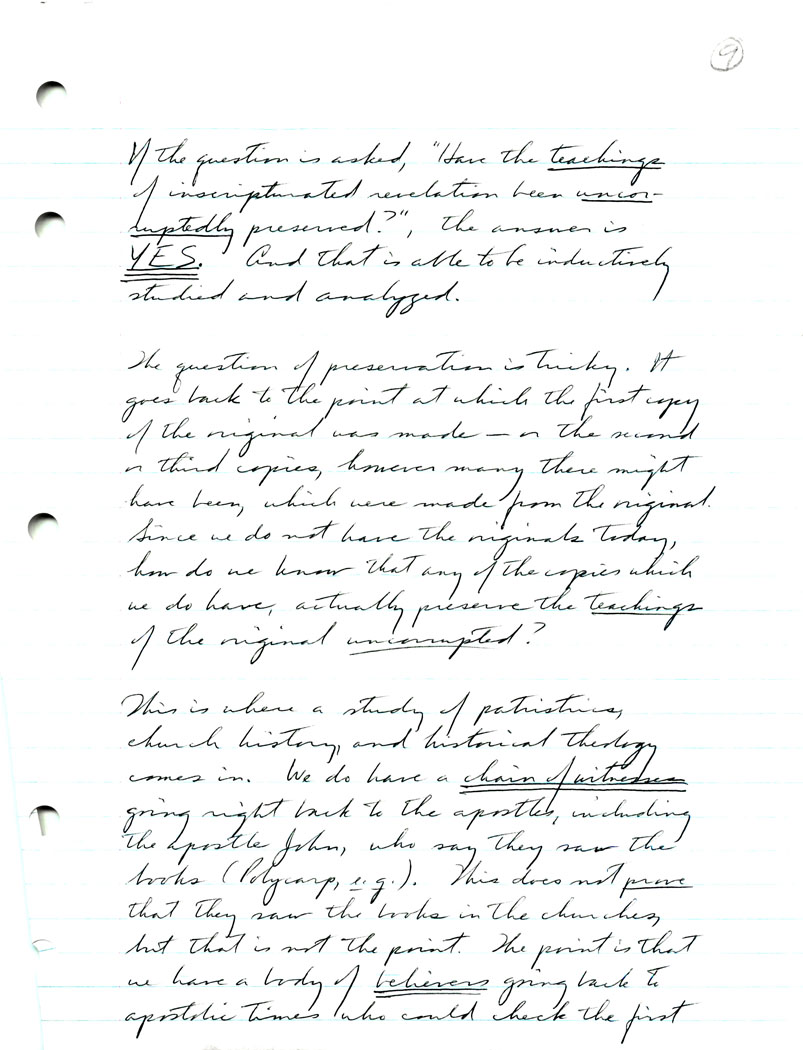 9
If the question is asked, "Have the teachings
of inscripturated revelation been uncor-
ruptedly preserved?", the answer is
YES. And that is able to be inductively
studied and analyzed.
The question of preservation is tricky. It
goes back to the point at which the first copy
of the original was made — or the second
or third copies, however many there might
have been, which were made from the original.
Since we do not have the originals today,
how do we know that any of the copies which
we do have, actually preserve the teachings
of the original uncorrupted?
This is where a study of patristics,
church history, and historical theology
comes in. We do have a chain of witnesses
going right back to the apostles, including
the apostle John, who say they saw the
books (Polycarp, e.g.). This does not prove
that they saw the books in the churches,
but that is not the point. The point is that
we have a body of believers going back to
apostolic times who could check the first